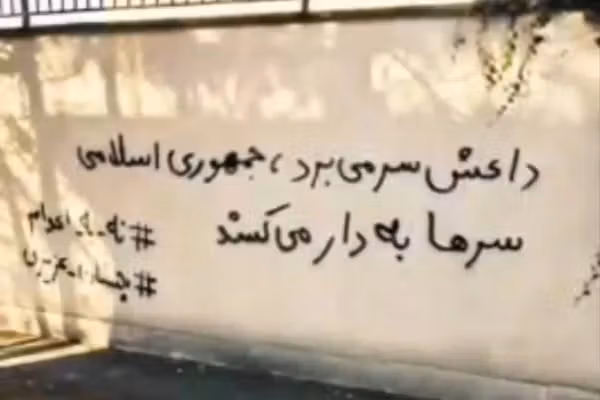 داعش سر می برد ، جمهوری اسلامی
سرها به دار می کشد
#نه_به_اعدام